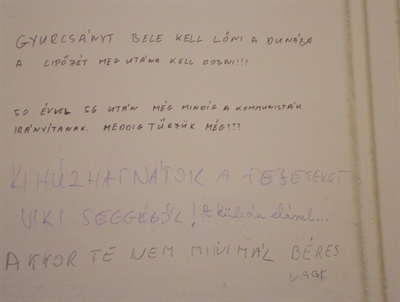 GYURCSÁNYT BELE KELL LŐNI A DUNÁBA
A CIPŐZÉT MEG UTÁNA KELL DOBNI!!!
50 ÉVVEL 56 UTÁN MÉG MINDIG A KOMMUNISTÁK
IRÁNYÍTANAK. MEDDIG TŰRJÜK MÉG???
KIHÚZHATNÁTOK A FEJETEKET
VIKI SEGGÉBŐL!
AKKOR TE NEM MINIMÁL BÉRES
VAGY.